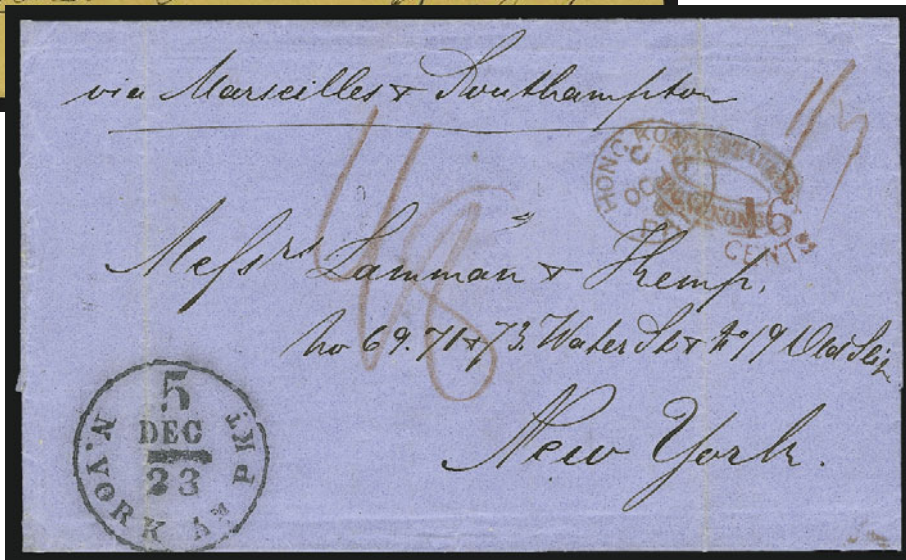 via Marseilles & Southampton
1/3
48
HONG KONG
OC
16
CENTS
Mefsrs Lanman & Kemp.
No 69. 71 & 73. Water St & No 19 Old Slip
New York.
5
DEC
23
N. YORK AM PKT